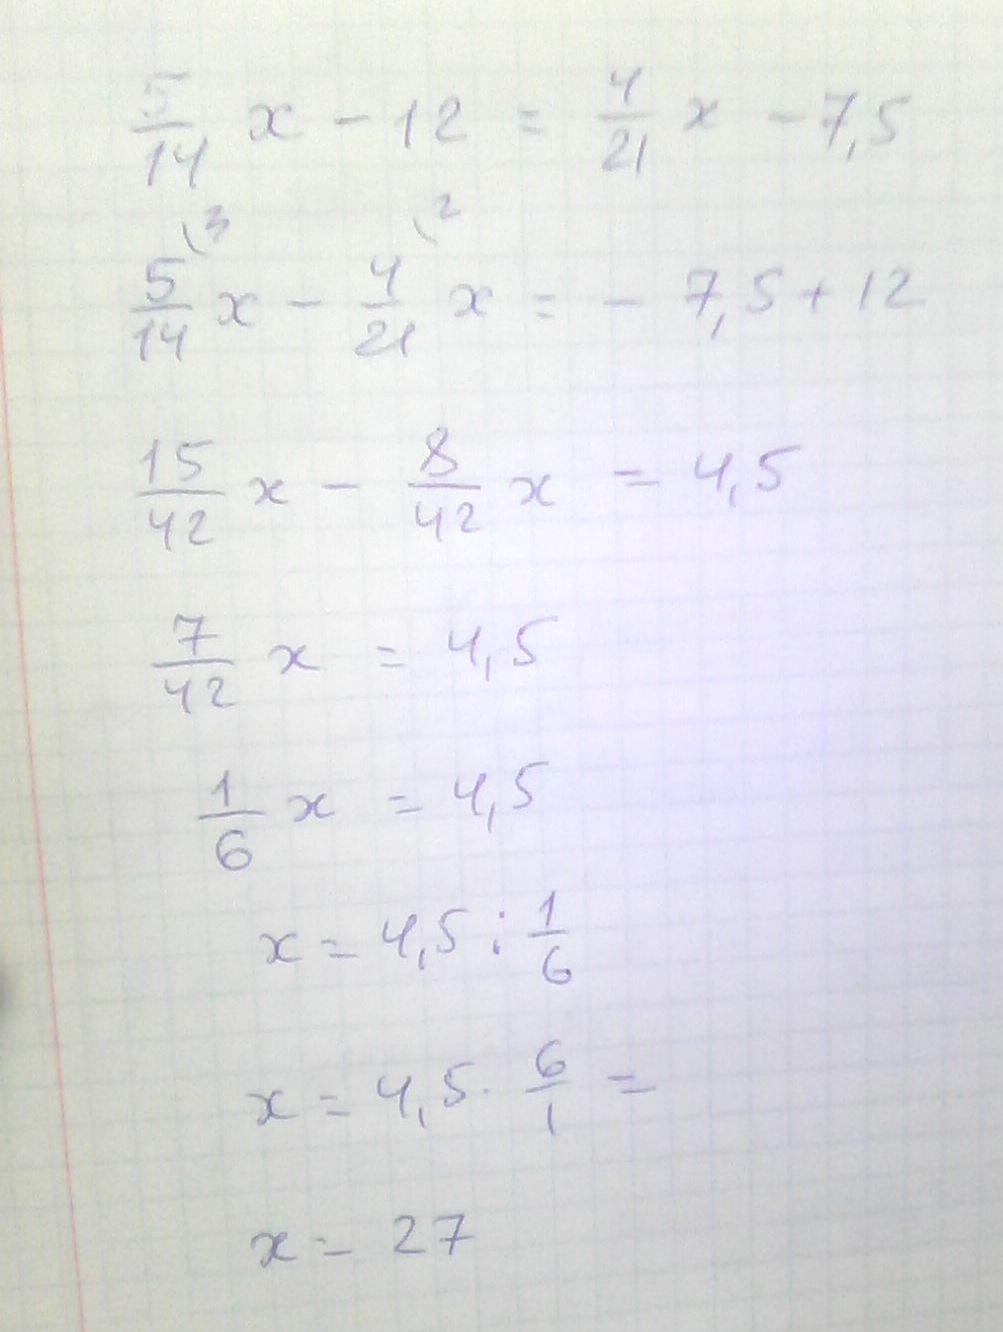 5/14 x - 12 = 4/21 x - 7,5
5/14 \3 x - 4/21 \2 x = - 7,5 + 12
15/42 x - 8/42 x = 4,5
7/42 x = 4,5
1/6 x = 4,5
x = 4,5 : 1/6
x = 4,5 · 6/1 =
x = 27